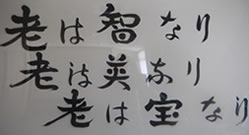 老は智なり
老は英なり
老は宝なり